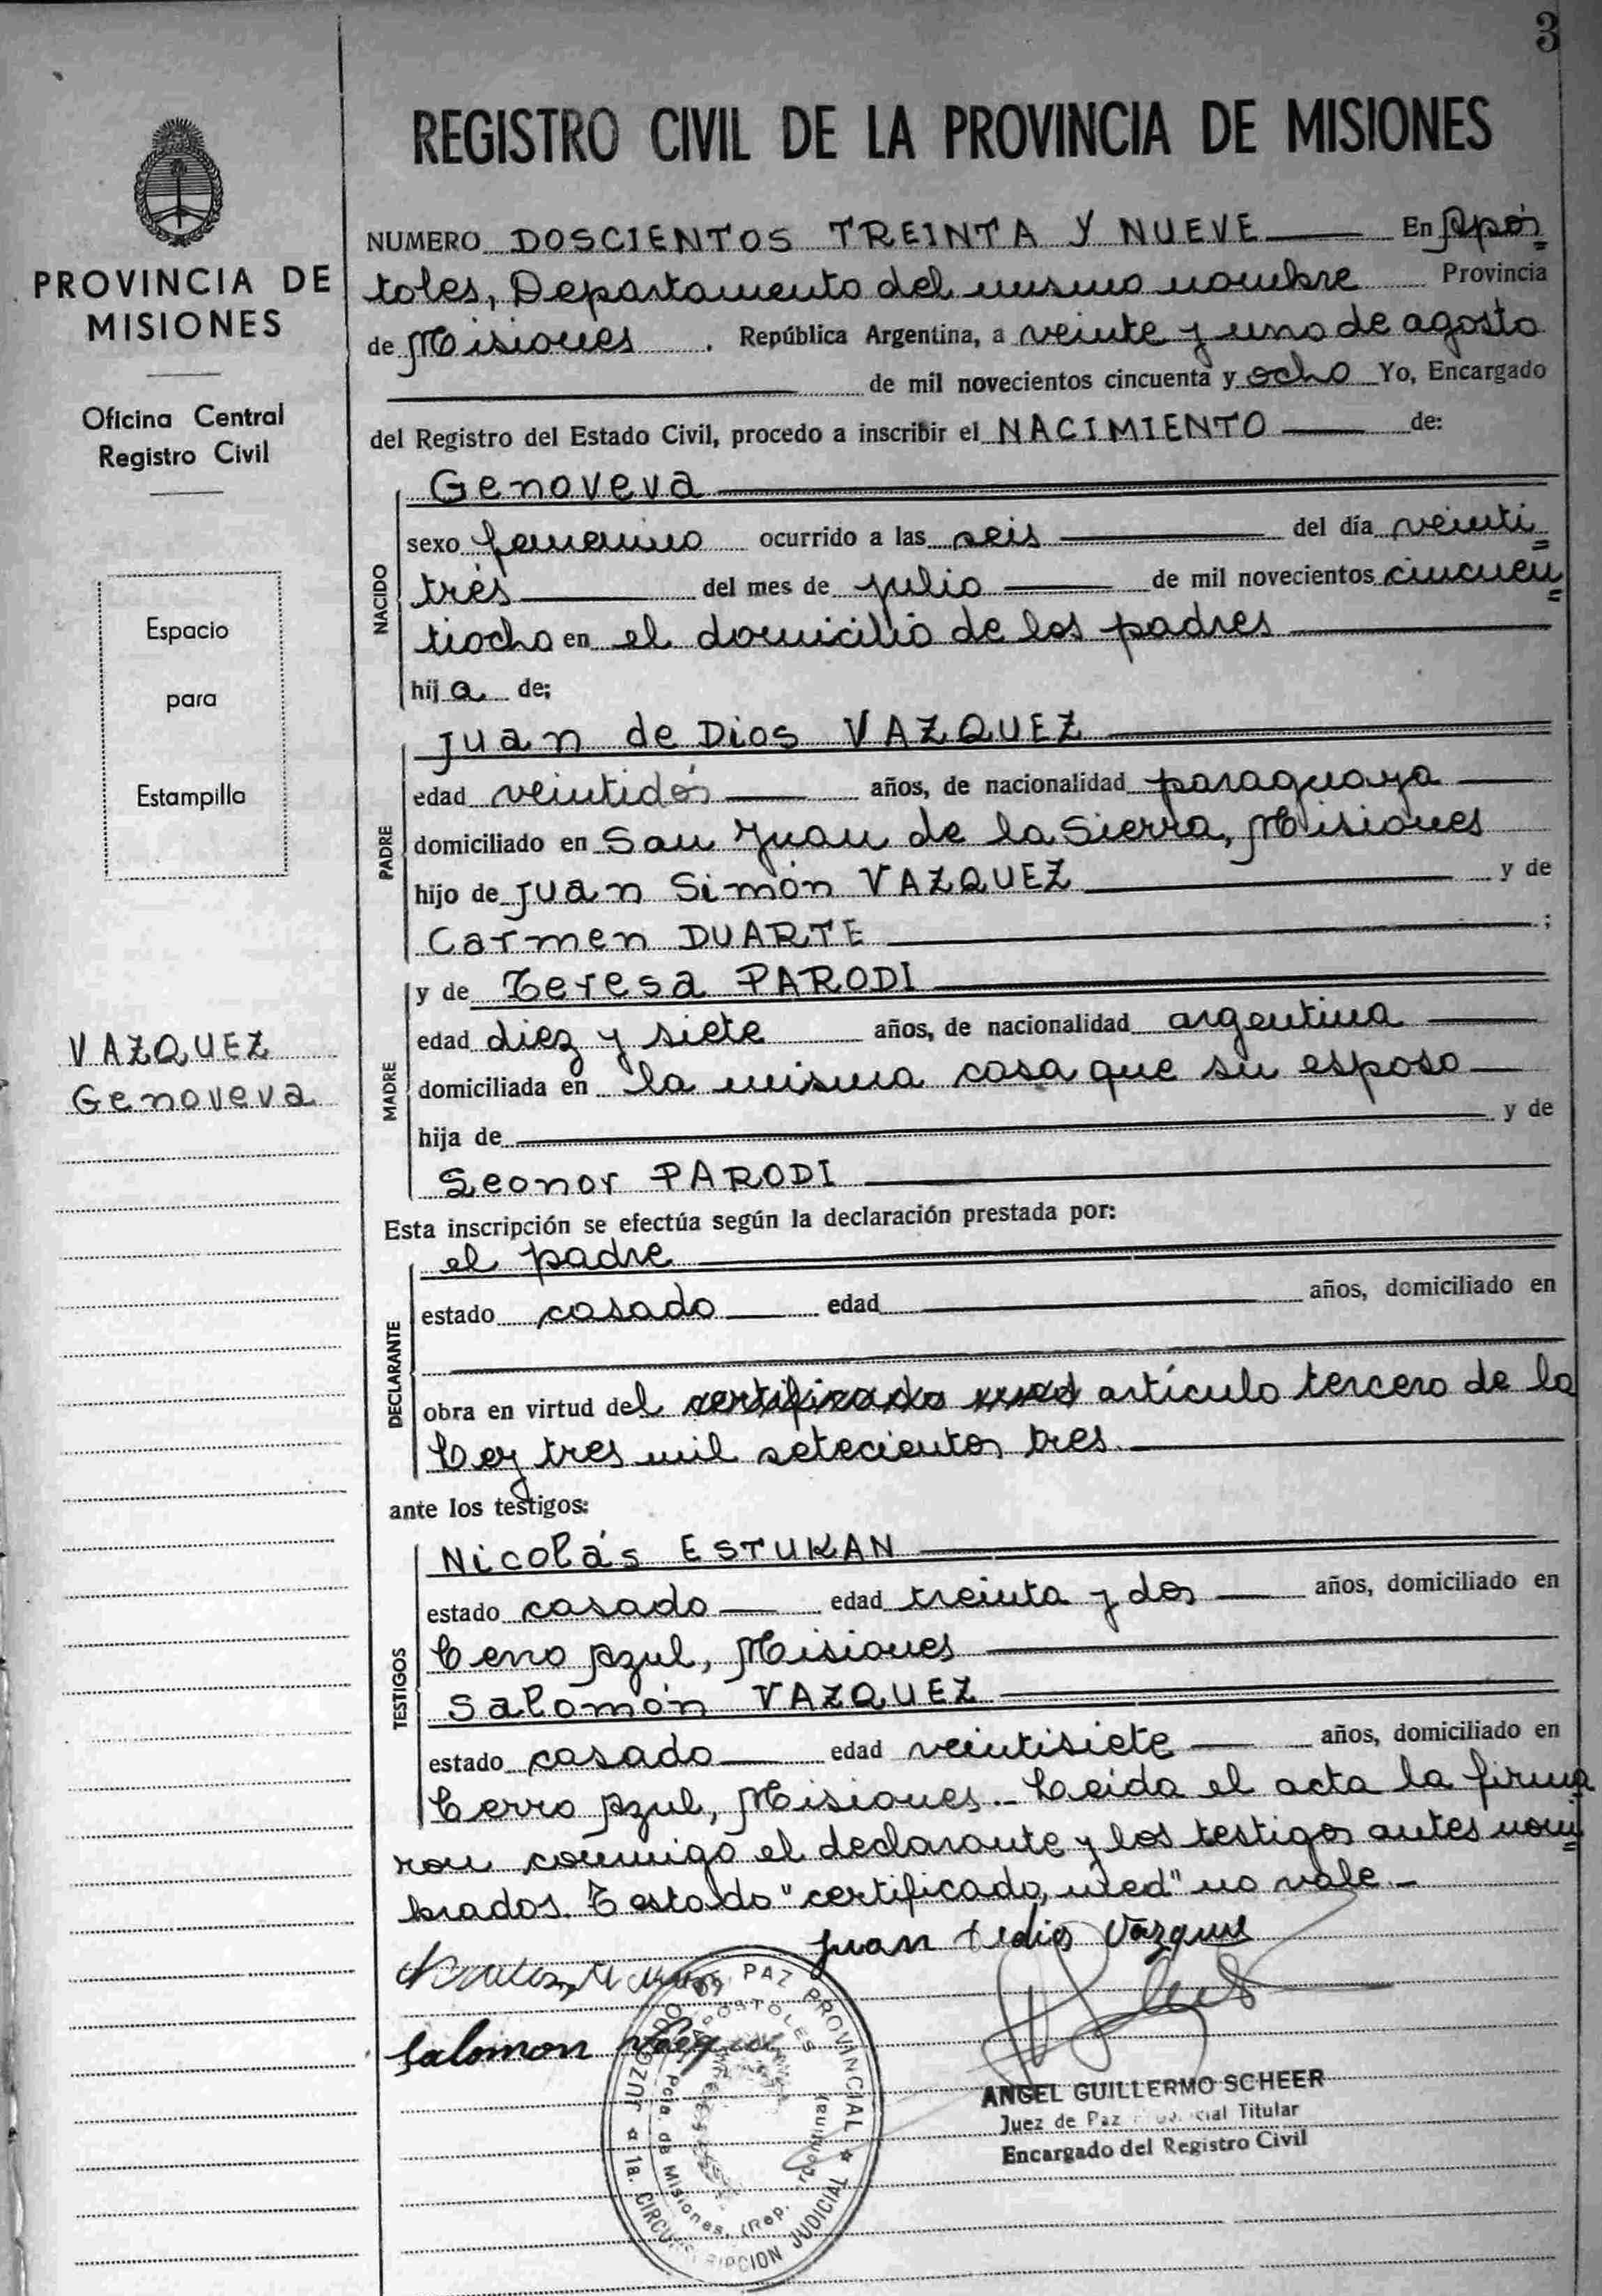 3
REGISTRO CIVIL DE LA PROVINCIA DE MISIONES
PROVINCIA DE
MISIONES
Oficina Central
Registro Civil
Espacio
para
Estampilla
VAZQUEZ
Genoveva
NUMERO DOSCIENTOS TREINTA Y NUEVE En Após
toles, Departamento del mismo nombre Provincia
de Misiones . República Argentina, a veinte y uno de agosto
de mil novecientos cincuenta y ocho Yo, Encargado
del Registro del Estado Civil, procedo a inscribir el NACIMIENTO de:
NACIDO
Genoveva
sexo femenino ocurrido a las seis del día veinti=
trés del mes de julio de mil novecientos cincuen=
tiocho en el domicilio de los padres
hija de;
PADRE
Juan de Dios VAZQUEZ
edad veintidós años, de nacionalidad paraguaya
domiciliado en San Juan de la Sierra, Misiones
hijo de Juan Simón VAZQUEZ y de
Carmen DUARTE ;
MADRE
y de Teresa PARODI
edad diez y siete años, de nacionalidad argentina
domiciliada en la misma casa que su esposo
hija de y de
Leonor PARODI
Esta inscripción se efectúa según la declaración prestada por:
DECLARANTE
el padre
estado casado edad años, domiciliado en
obra en virtud del certificado med artículo tercero de la
Ley tres mil setecientos tres.
ante los testigos:
TESTIGOS
Nicolás ESTUKAN
estado casado edad treinta y dos años, domiciliado en
Cerro Azul, Misiones
Salomón VAZQUEZ
estado casado edad veintisiete años, domiciliado en
Cerro Azul, Misiones.- Leida el acta la firma
ron conmigo el declarante y los testigos antes nom=
brados. Testado "certificado, med" no vale.-
Juan dedios Vazques
Salomon
JUZGADO DE PAZ PROVINCIAL
APÓSTOLES
1a. CIRCUNSCRIPCION JUDICIAL
Pcia. de Misiones, (Rep. Argentina)
ANGEL GUILLERMO SCHEER
Juez de Paz Provincial Titular
Encargado del Registro Civil